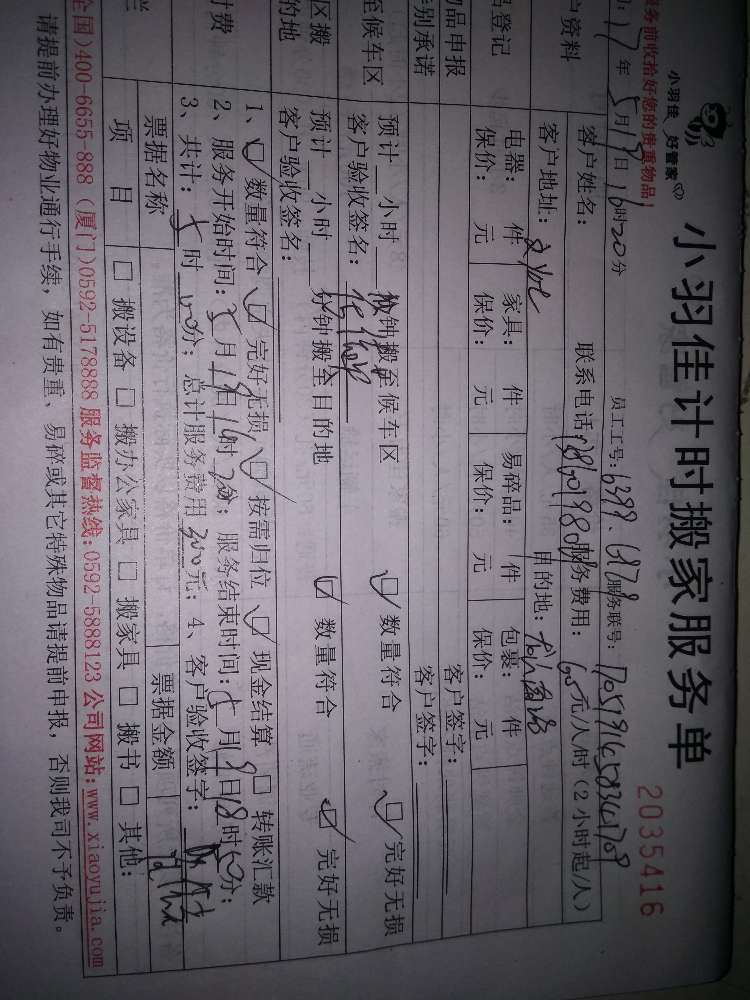 小羽佳 好管家
小羽佳计时搬家服务单
2035416
服务前收拾好您的贵重物品！
17年5月19日16时20分 员工工号：6399、6879 服务联号：
户资料
客户姓名： 联系电话： 服务费用：60元/人/时（2小时起/人）
客户地址： 目的地：
品登记
电器： 件 家具： 件 易碎品： 件 包裹： 件
保价： 元 保价： 元 保价： 元 保价： 元
物品申报 客户签字：
特别承诺 客户签字：
至候车区
预计 小时 分钟搬至候车区 数量符合 完好无损
客户验收签名：
区搬
的地
预计 小时 分钟搬至目的地 数量符合 完好无损
客户验收签名：
付费
1、 数量符合 完好无损 按需归位 现金结算 转账汇款
2、服务开始时间：5月19日16时20分；服务结束时间：5月19日18时 分；
3、共计： 时 分；总计服务费用300元；4、客户验收签字：
票据名称 票据金额
栏
项 目 □ 搬设备 □ 搬办公家具 □ 搬家具 □ 搬书 □ 其他：
全国)400-6655-888（厦门)0592-5178888 服务监督热线：0592-5888123 公司网站：www.xiaoyujia.com
请提前办理好物业通行手续，如有贵重、易碎或其它特殊物品请提前申报，否则我司不予负责。